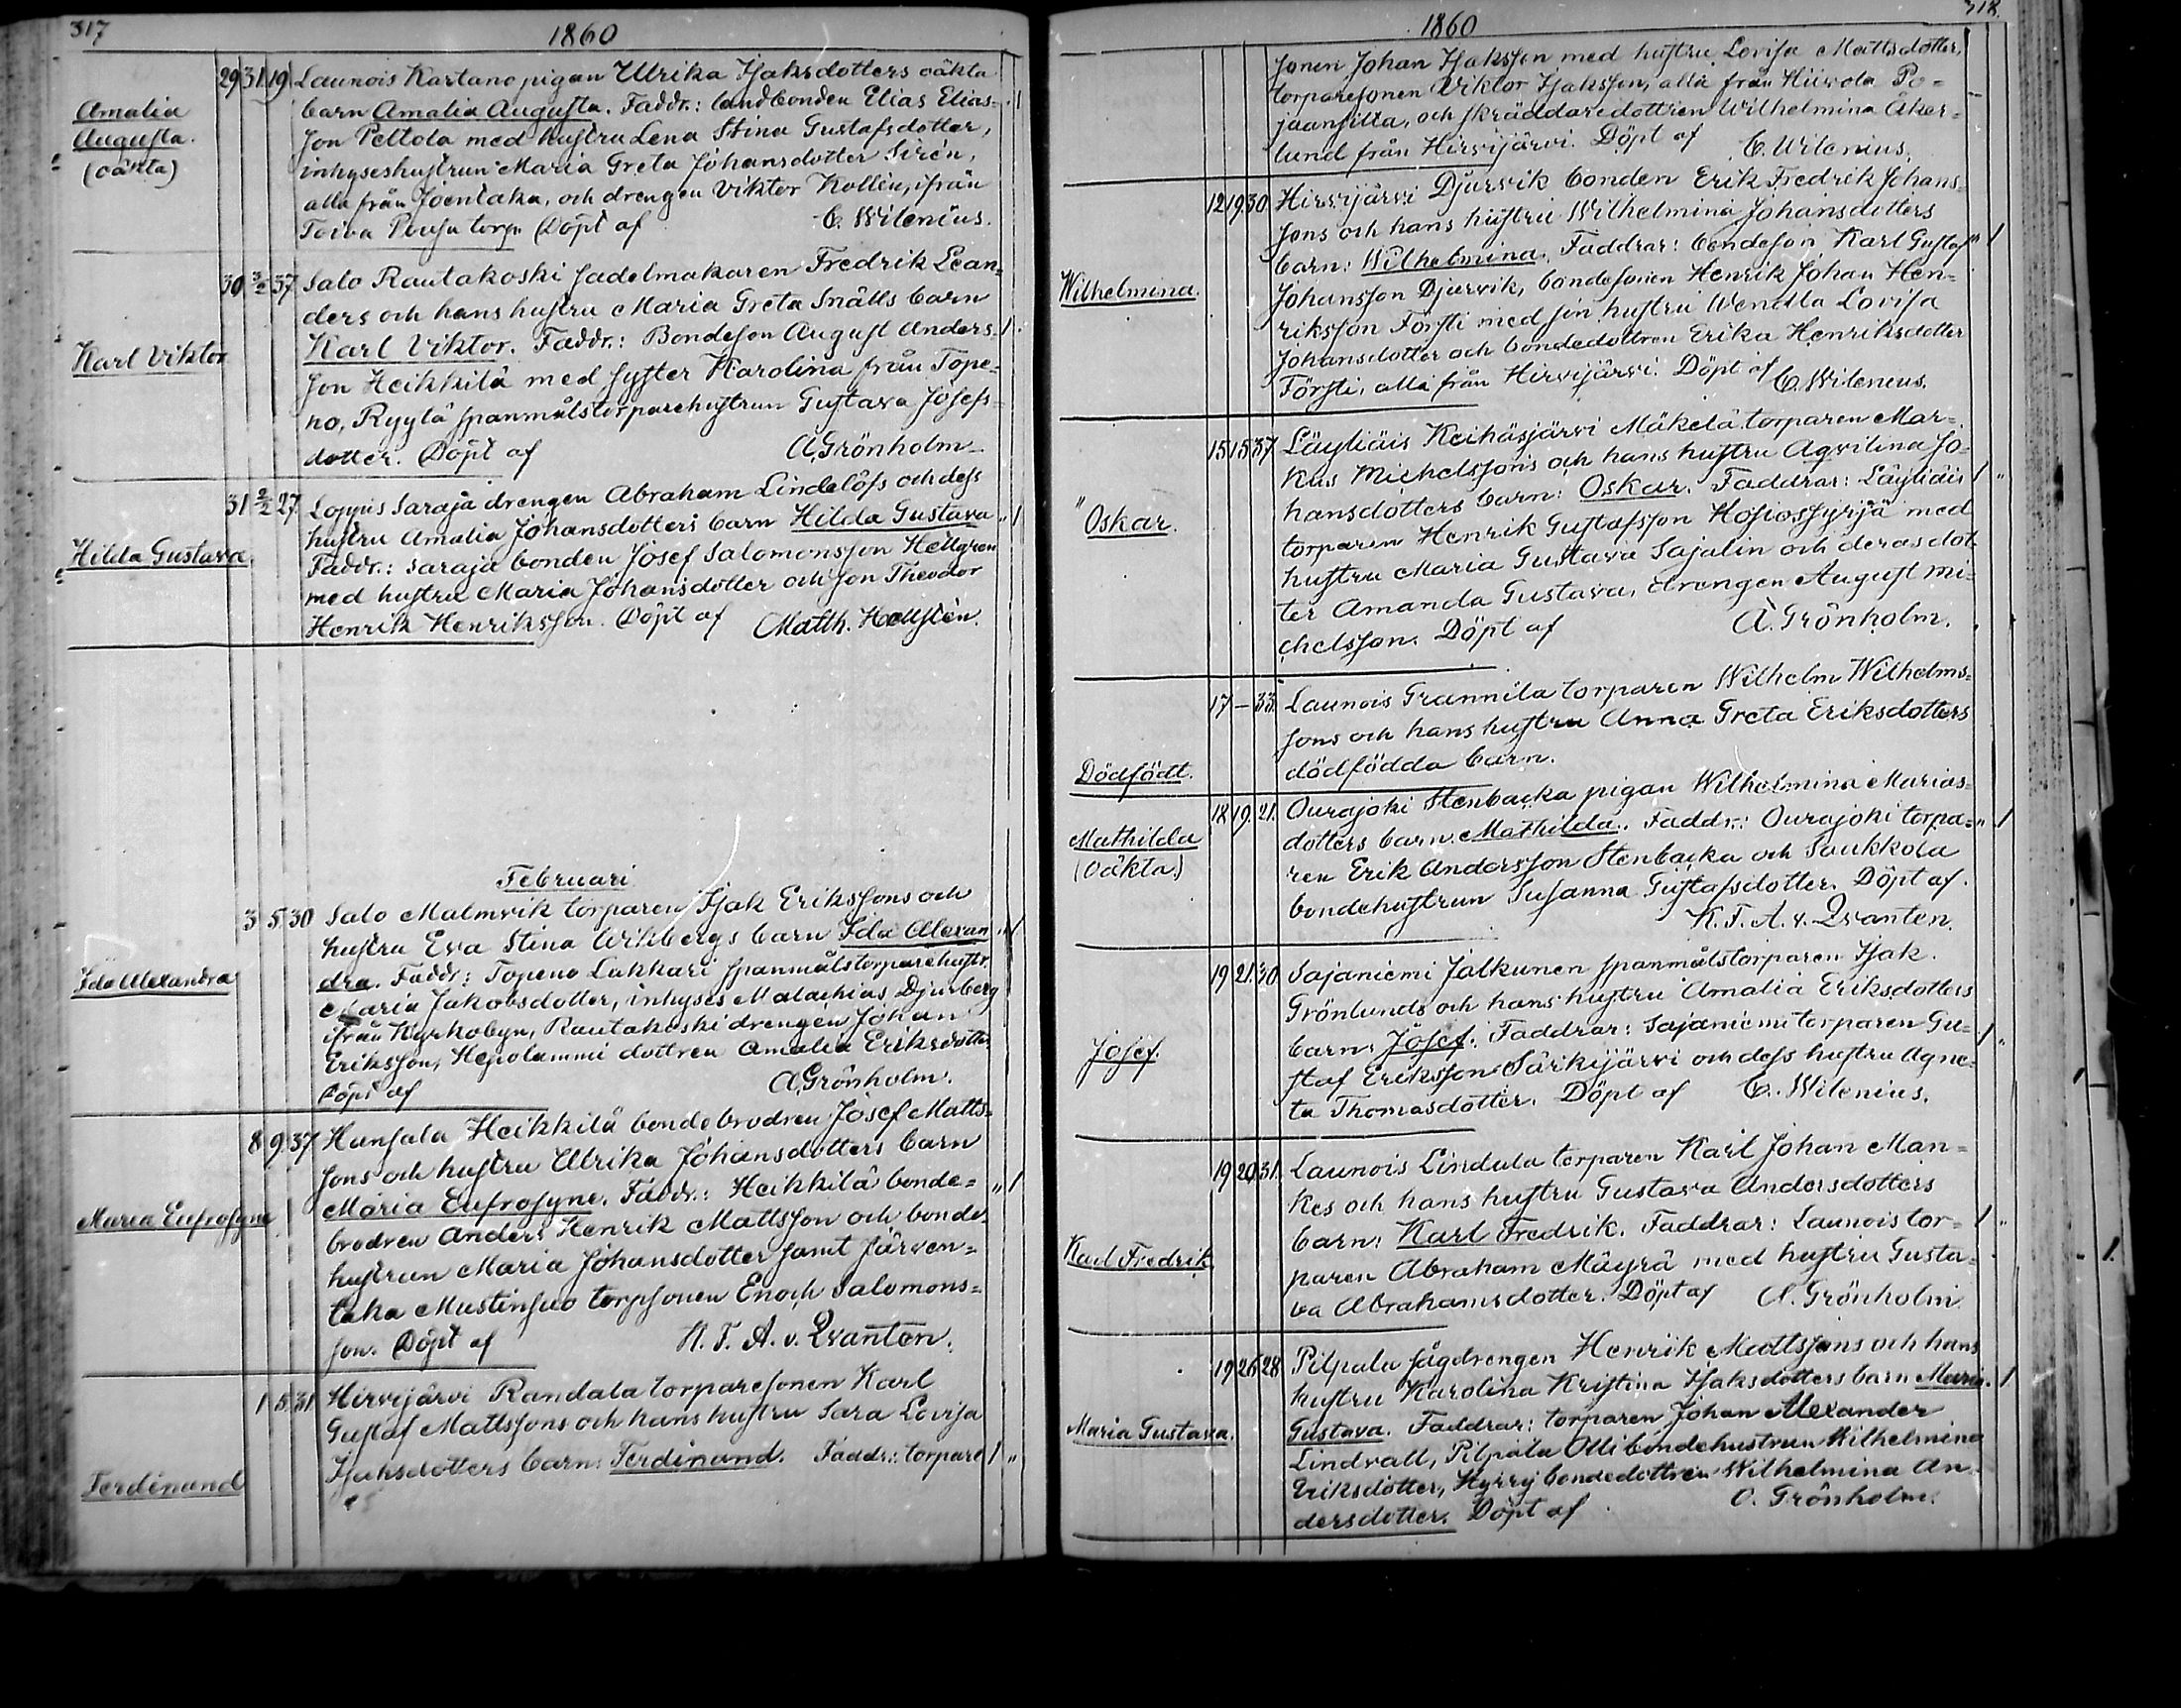 317
1860
Amalia
Augusta.
(oäkta)
29 31 19. Launois Kartano pigan Ulrika Isaksdotters oäkta
barn Amalia Augusta. Faddr.: landbonden Elias Elias-
son Peltola med hustru Lena Stina Gustafsdotter,
inhyseshustrun Maria Greta Johansdotter Sirén,
alla från Joentaka, och drengen Viktor Kollin, ifrån
Toiva torp. Döpt af C. Wilenius.
Karl Viktor
30 3/2 37 Salo Rautakoski sadelmakaren Fredrik Lean-
ders och hans hustru Maria Greta Snälls barn
Karl Viktor. Faddr.: Bondeson August Anders-
son Heikkilä med syster Karolina från Tope-
no, Ryylä spanmålstorparehustrun Gustava Josefs-
dotter. Döpt af A. Grönholm
Hilda Gustava
31 2/2 27. Loppis Saraja drengen Abraham Lindelöfs och dess
hustru Amalia Johansdotters barn Hilda Gustava
Faddr.: Saraja bonden Josef Salomonsson Hellgren
med hustru Maria Johansdotter och son Theodor
Henrik Henriksson. Döpt af Matth. Hellstén.
Februari
Ida Alexandra
3 5 30 Salo Malmvik torparen Isak Erikssons och
hustru Eva Stina Wikbergs barn Ida Alexan
dra. Faddr: Topeno Lakkari spanmålstorparehustr.
Maria Jakobsdotter, inhyses Malachias Djurberg
ifrån Kyrkobyn, Rautakoski drengen Johan
Eriksson, Hepolammi dottren Amalia Eriksdotter
Döpt af A. Grönholm.
Maria Eufrosyne
8 9 37 Hunsala Heikkilä bondebrodren Josef Matts-
sons och hustru Ulrika Johansdotters barn
Maria Eufrosyne. Faddr.: Heikkilä bonde-
brodren Anders Henrik Mattsson och bonde-
hustrun Maria Johansdotter samt Järven-
taka Mustinsuo torpsonen Enoch Salomons-
son. Döpt af K. F. A. v. Qvanten.
Ferdinand
1 5 31 Hirvijärvi Randala torparesonen Karl
Gustaf Mattssons och hans hustru Sara Lovisa
Isaksdotters barn: Ferdinand. Faddr.: torpare
1860
318.
sonen Johan Isaksson med hustru Lovisa Mattsdotter,
torparesonen Viktor Isaksson, alla från Po-
jaansilta, och skräddaredottren Wilhelmina Åker-
lund från Hirvijärvi. Döpt af C. Wilenius.
Wilhelmina
12 19 30 Hirvijärvi Djurvik bonden Erik Fredrik Johans-
sons och hans hustru Wilhelmina Johansdotters
barn: Wilhelmina. Faddrar: bondeson Karl Gustaf
Johansson Djurvik, bondesonen Henrik Johan Hen-
riksson Försti med sin hustru Wendla Lovisa
Johansdotter och bondedottren Erika Henriksdotter
Försti, alla från Hirvijärvi. Döpt af C. Wilenius.
"Oskar.
15 15 37 Läyliäis Keihäsjärvi Mäkelä torparen Mar-
kus Michelssons och hans hustru Aqvilina Jo-
hansdotters barn: Oskar. Faddrar: Läyliäis
torparen Henrik Gustafsson Hosiossyrjä med
hustru Maria Gustava Sajalin och deras dot-
ter Amanda Gustava, drengen August Mi-
chelsson. Döpt af A. Grönholm.
Dödfödt.
17 – 33. Launois Grannila torparen Wilhelm Wilhelms-
sons och hans hustru Anna Greta Eriksdotters
dödfödda barn.
Mathilda
(Oäkta)
18 19. 21. Ourajoki Stenbacka pigan Wilhelmina Marias-
dotters barn: Mathilda. Faddr.: Ourajoki torpa-
ren Erik Andersson Stenbacka och Saukkola
bondehustrun Susanna Gustafsdotter. Döpt af.
K. F. A. v. Qvanten.
Josef.
19 21. 30. Sajaniemi Jalkunen spanmålstorparen Isak
Grönlunds och hans hustru Amalia Eriksdotters
barn: Josef. Faddrar: Sajaniemi torparen Gu-
staf Eriksson Särkijärvi och dess hustru Agne-
ta Thomasdotter. Döpt af C. Wilenius.
Karl Fredrik
19 20 31. Launois Lindula torparen Karl Johan Man-
kes och hans hustru Gustava Andersdotters
barn: Karl Fredrik. Faddrar: Launois tor-
paren Abraham Mäyrä med hustru Gusta-
va Abrahamsdotter. Döpt af A. Grönholm
Maria Gustava.
19 26 28 Pilpala sågdrengen Henrik Mattssons och hans
hustru Karolina Kristina Isaksdotters barn Maria
Gustava. Faddrar: torparen Johan Alexander
Lindvall, Pilpala Olli bondehustrun Wilhelmina
Eriksdotter, Kyrrij bondedottren Wilhelmina An-
dersdotter. Döpt af O. Grönholm.